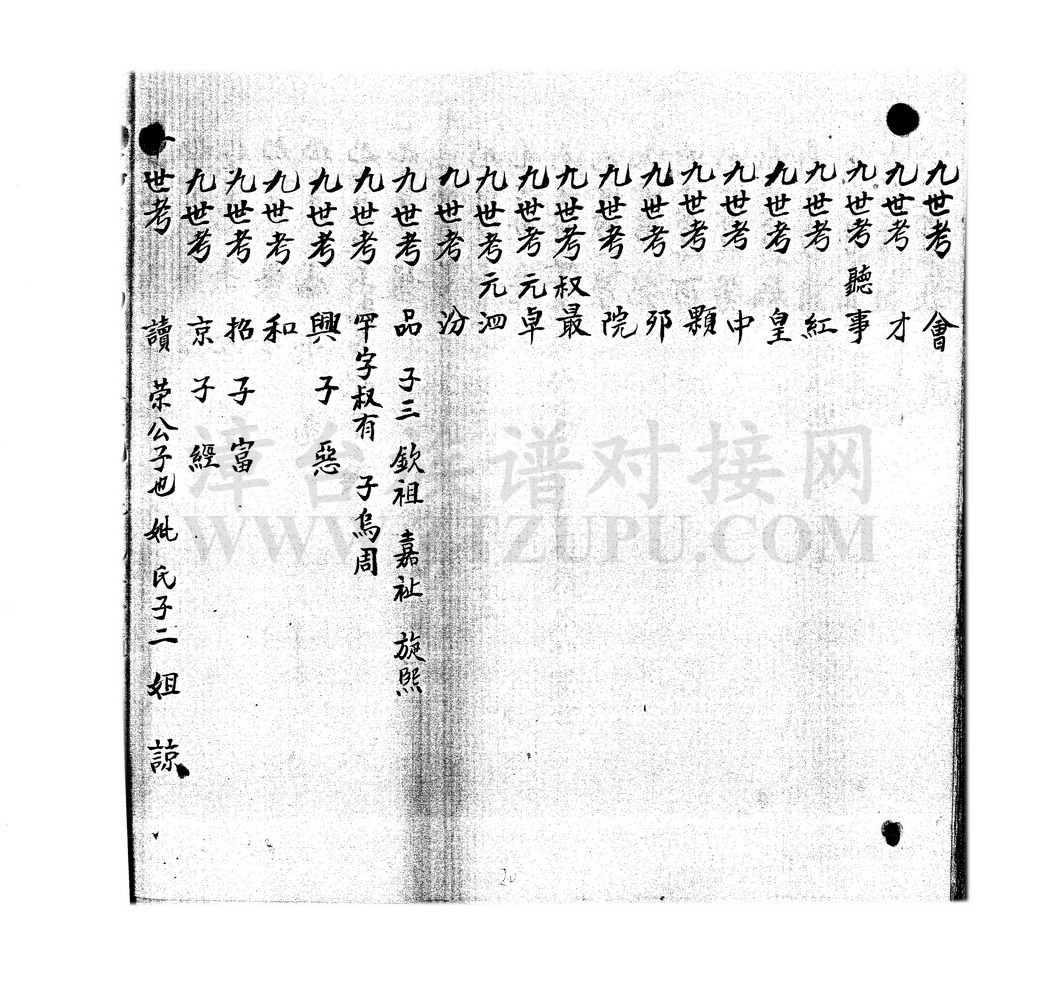 九世考 會
九世考 才
九世考 聽事
九世考 紅
九世考 皇
九世考 中
九世考 顆
九世考 邜
九世考 院
九世考 叔最
九世考 元卓
九世考 元泗
九世考 汾
九世考 品 子三 欽祖 嘉祉 旋熙
九世考 罕字叔有 子烏周
九世考 興 子 惡
九世考 和
九世考 招 子 富
九世考 京 子 經
十世考 讀 荣公子也 妣 氏子二 姐 諒
漳台 谱对接网
WWW. TZUPU.COM